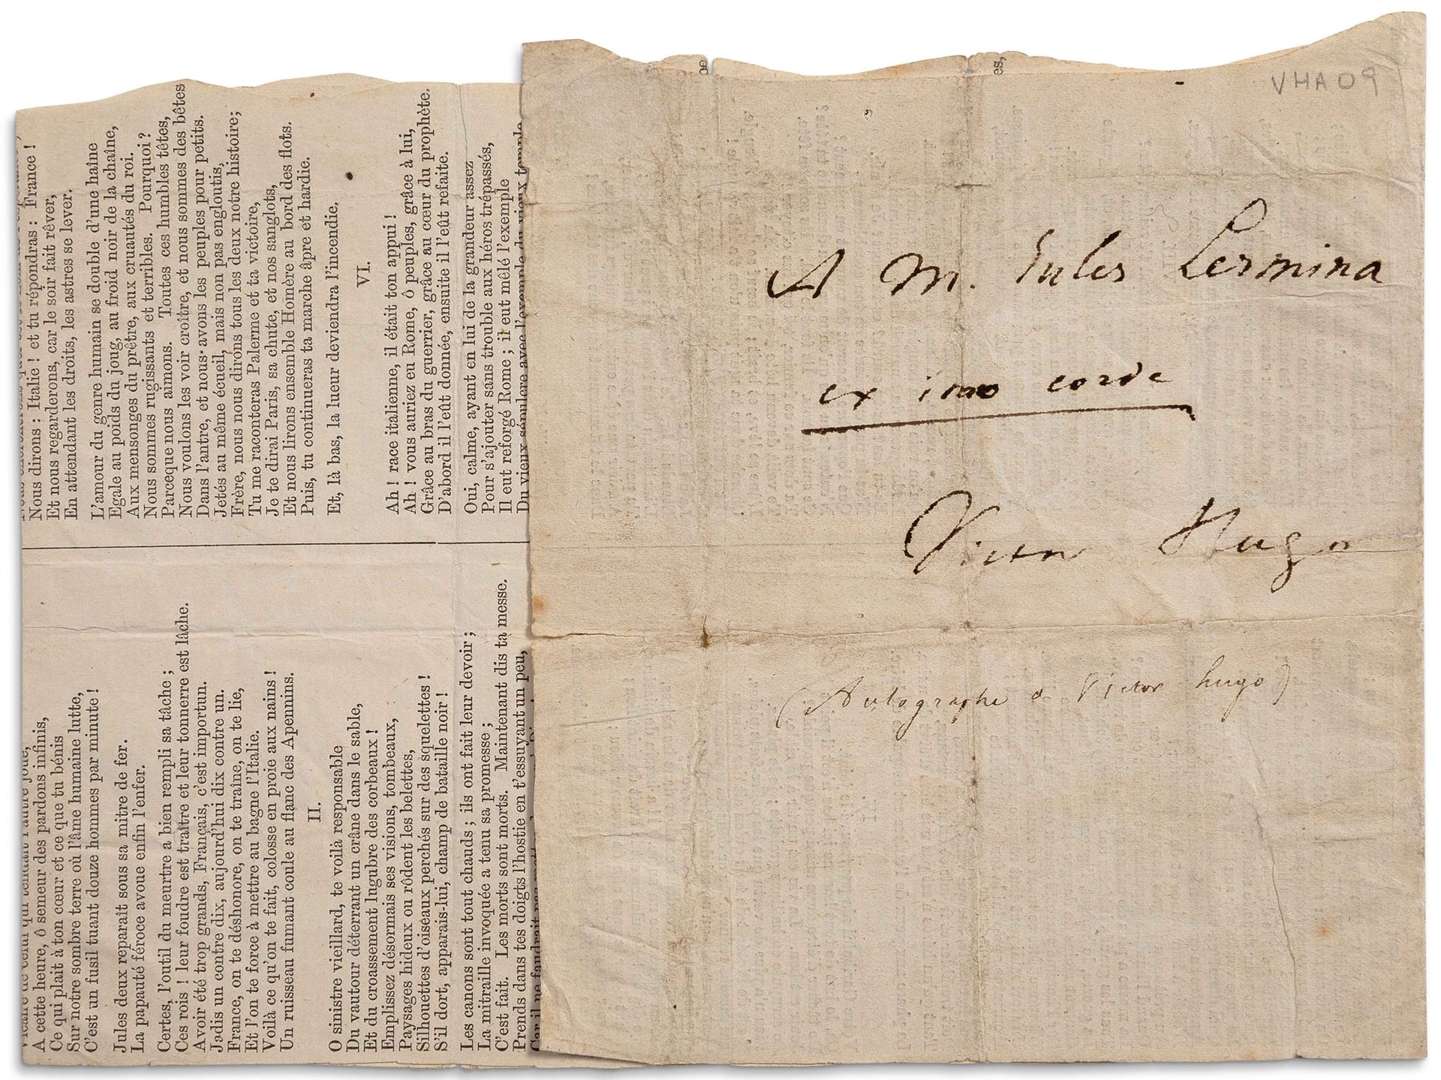 VHA09
A M. Jules Lermina
ex imo corde
Victor Hugo
(Autographe de Victor hugo)
Nous dirons: Italie! et tu répondras: France!
Et nous regarderons, car le soir fait rêver,
En attendant les droits, les astres se lever.
L'amour du genre humain se double d'une haîne
Egale au poids du joug, au froid noir de la chaîne,
Aux mensonges du prêtre, aux cruautés du roi.
Nous sommes rugissants et terribles. Pourquoi?
Parceque nous aimons. Toutes ces humbles têtes,
Nous voulons les voir croître, et nous sommes des bêtes
Dans l'antre, et nous avons les peuples pour petits.
Jetés au même écueil, mais non pas engloutis,
Frère, nous nous dirons tous les deux notre histoire;
Tu me raconteras Palerme et ta victoire,
Je te dirai Paris, sa chute, et nos sanglots,
Et nous lirons ensemble Homère au bord des flots.
Puis, tu continueras ta marche âpre et hardie.
Et, là bas, la lueur deviendra l'incendie.
VI.
Ah! race italienne, il était ton appui!
Ah! vous auriez eu Rome, ô peuples, grâce à lui,
Grâce au bras du guerrier, grâce au cœur du prophète.
D'abord il l'eût donnée, ensuite il l'eût refaite.
Oui, calme, ayant en lui de la grandeur assez
Pour s'ajouter sans trouble aux héros trépassés,
Il eut reforgé Rome; il eut mêlé l'exemple
Du vieux sépulcre avec l'exemple du vieux temple
A cette heure, ô semeur des pardons infinis,
Ce qui plait à ton cœur et ce que tu bénis
Sur notre sombre terre où l'âme humaine lutte,
C'est un fusil tuant douze hommes par minute!
Jules deux reparait sous sa mitre de fer.
La papauté féroce avoue enfin l'enfer.
Certes, l'outil du meurtre a bien rempli sa tâche;
Ces rois! leur foudre est traître et leur tonnerre est lâche.
Avoir été trop grands, Français, c'est importun.
Jadis un contre dix, aujourd'hui dix contre un.
France, on te déshonore, on te traîne, on te lie,
Et l'on te force à mettre au bagne l'Italie.
Voilà ce qu'on te fait, colosse en proie aux nains!
Un ruisseau fumant coule au flanc des Apennins.
II.
O sinistre vieillard, te voilà responsable
Du vautour déterrant un crâne dans le sable,
Et du croassement lugubre des corbeaux!
Emplissez désormais ses visions, tombeaux,
Paysages hideux où rôdent les belettes,
Silhouettes d'oiseaux perchés sur des squelettes!
S'il dort, apparais-lui, champ de bataille noir!
Les canons sont tout chauds; ils ont fait leur devoir;
La mitraille invoquée a tenu sa promesse;
C'est fait. Les morts sont morts. Maintenant dis ta messe.
Prends dans tes doigts l'hostie en t'essuyant un peu,